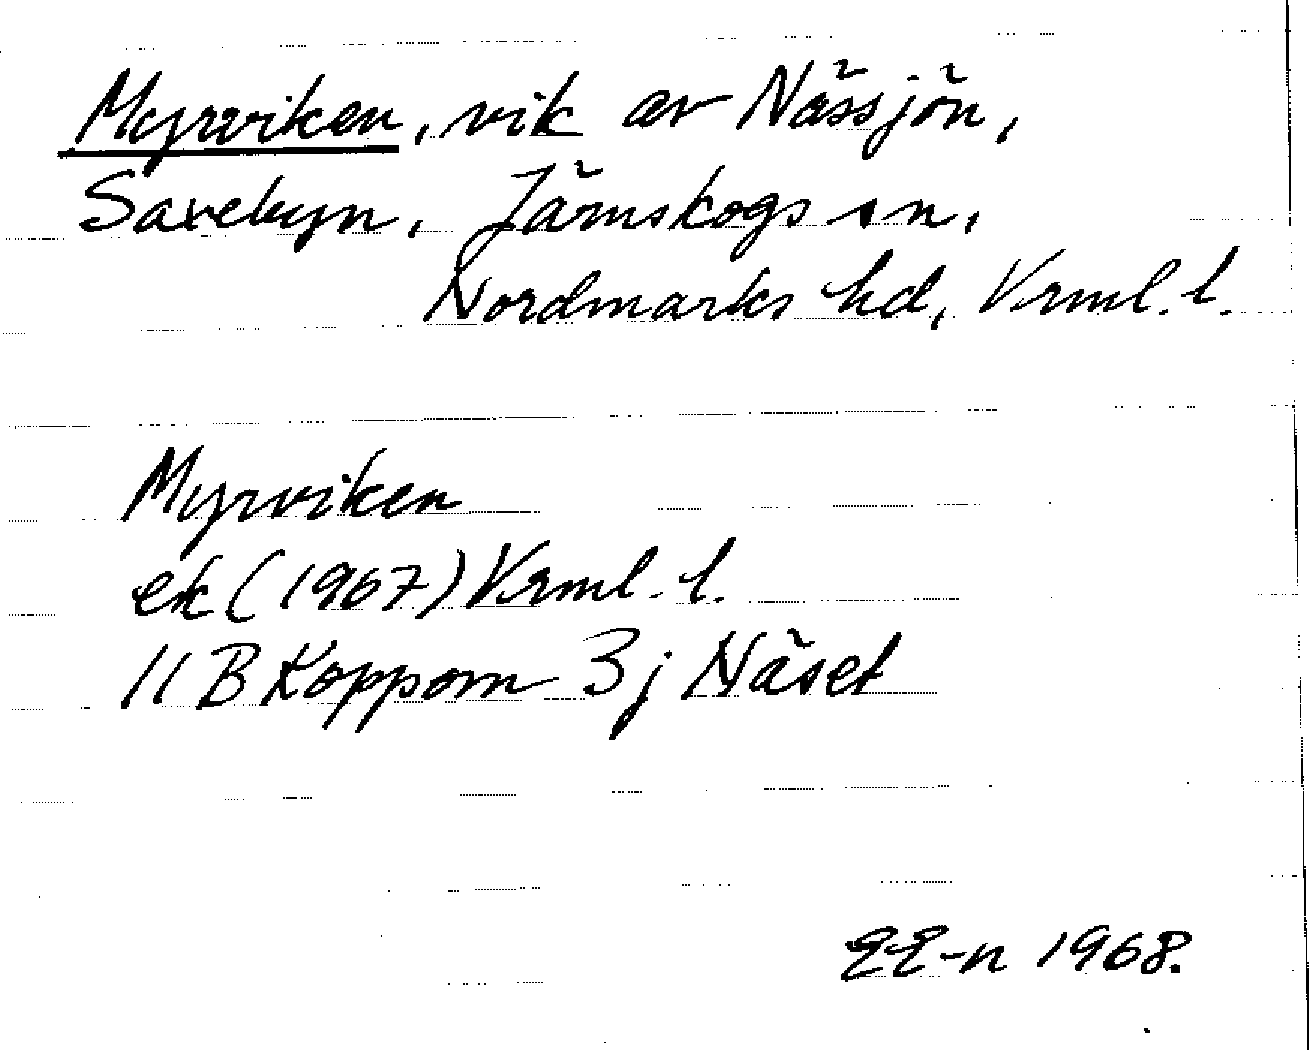 Myrviken, vik av Nässjön,
Saxebyn, Järnskogs sn,
Nordmarks hd, Vrml. l.
Myrviken
ek (1967) Vrml. l.
11 B Koppom 3j Näset
EE-n 1968.